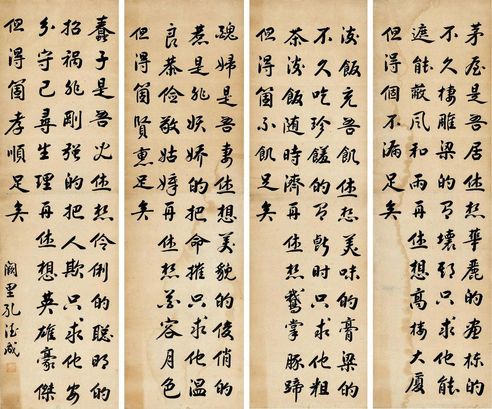 茅屋是吾居休想華麗的畫栋的
不久棲雕梁的有壞時只求他能
遮能蔽风和雨再休想高楼大廈
但得個不漏足矣
淡飯充吾飢休想美味的膏粱的
不久吃珍饈的有斷时只求他粗
茶淡飯随時濟再休想鵞掌豚蹄
但得箇不飢足矣
醜婦是吾妻休想美貌的俊俏的
惹是非妖嬌的把命摧只求他温
良恭儉敬姑嫜再休想花容月色
但得箇賢惠足矣
養子是吾休想伶俐的聰明的
招禍非剛强的把人欺只求他安
分守己尋生理再休想英雄豪傑
但得箇孝順足矣
闕里孔德成